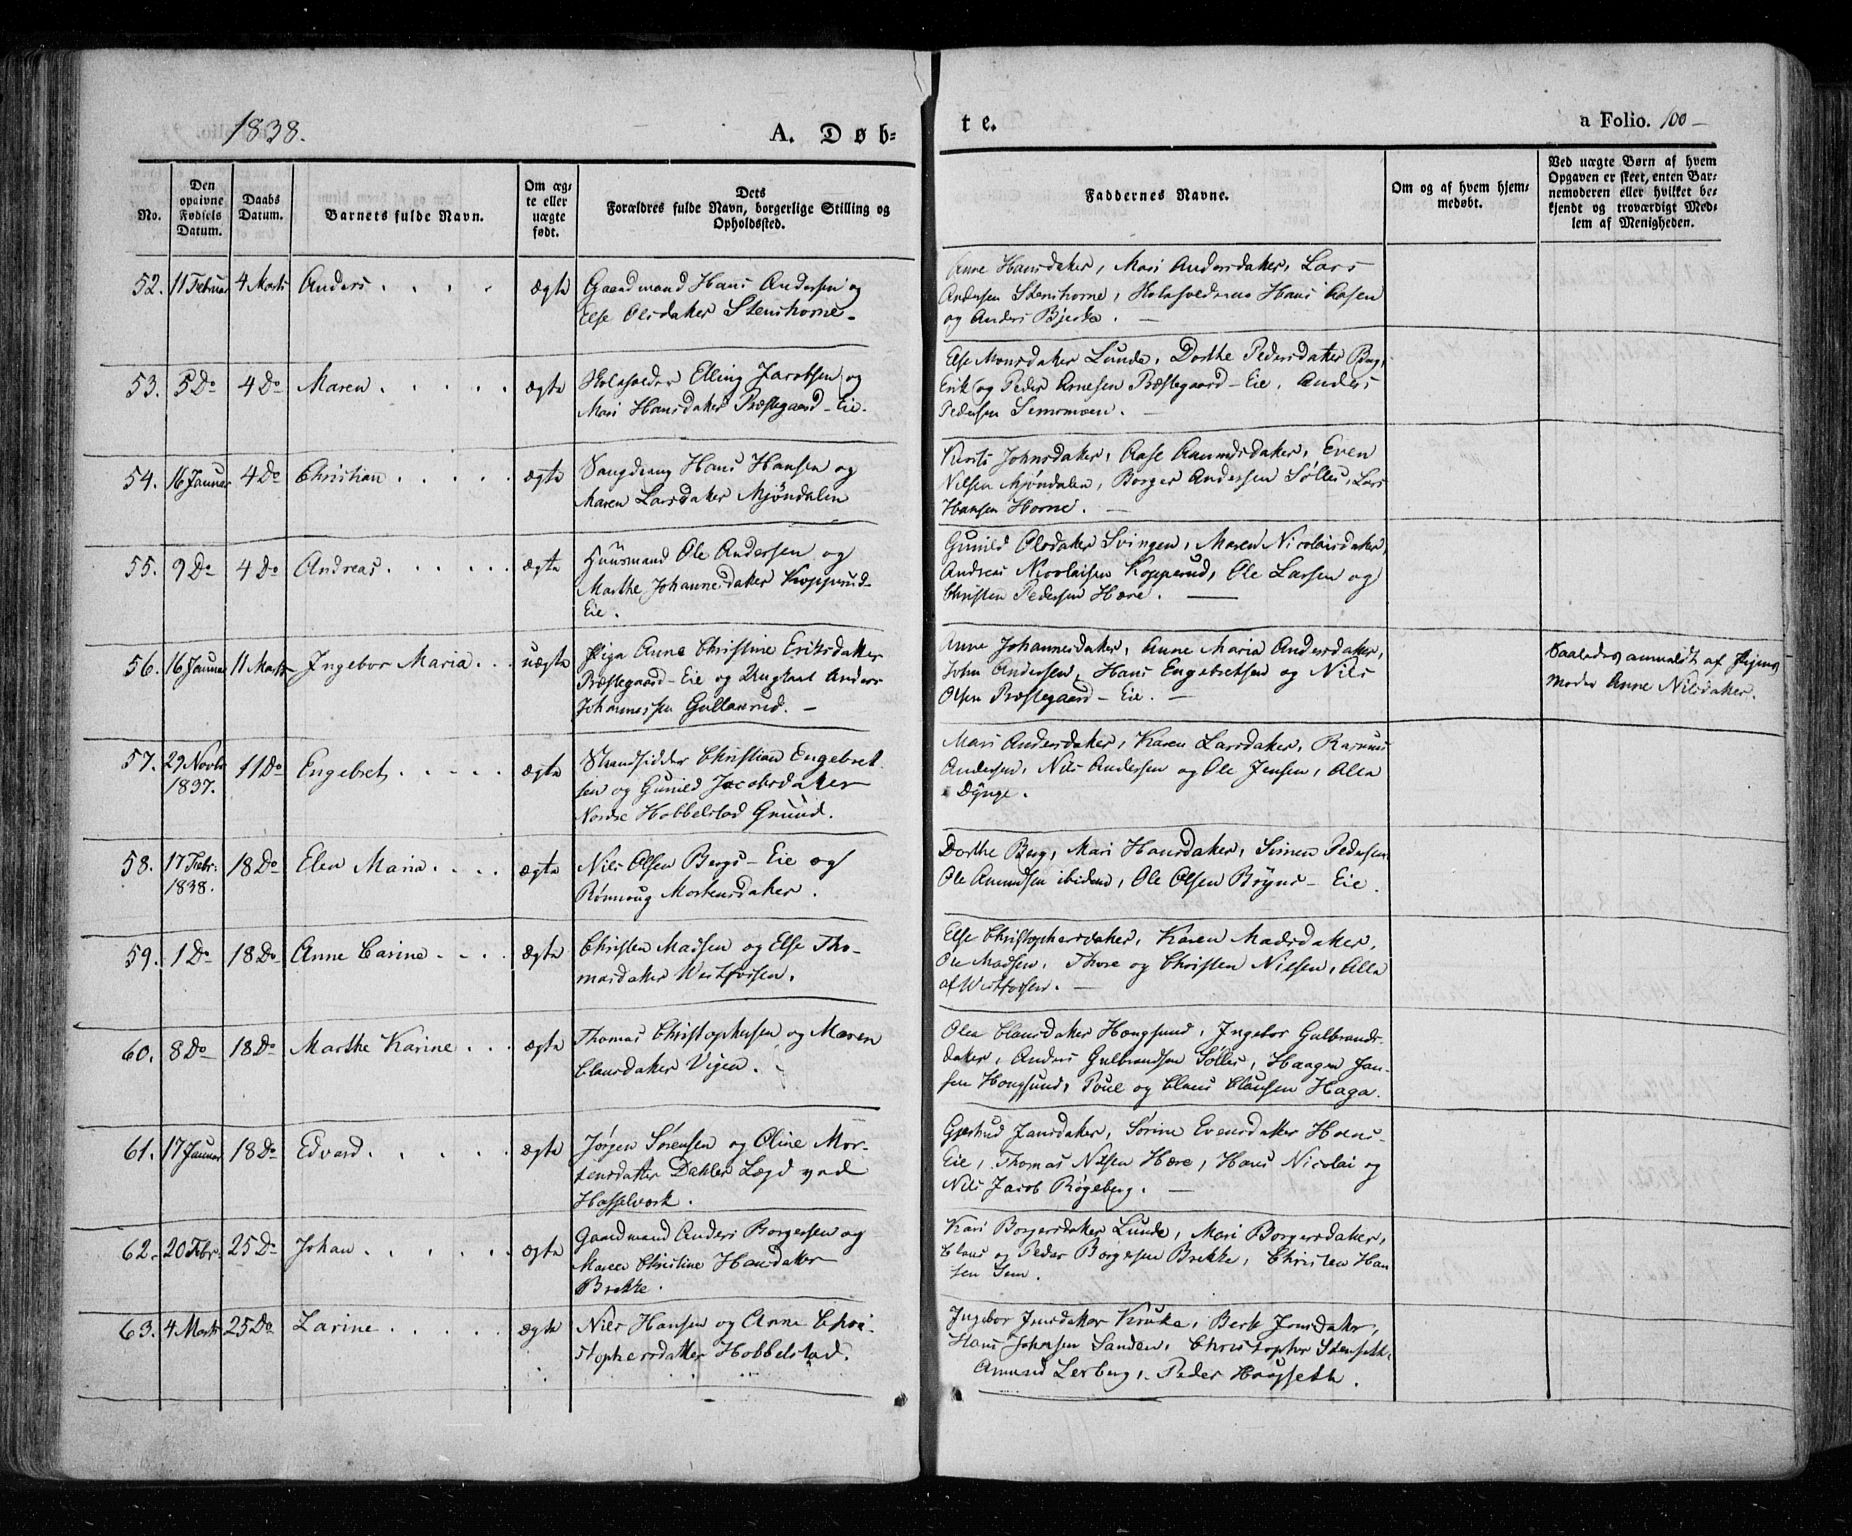 1838.
A. Døb-
te.
a Folio. 100
No.
Den
opgivne
Fødsels
Datum.
Daabs
Datum.
Barnets fulde Navn.
Om æg-
te eller
uægte
født.
Dets
Forældres fulde Navn, borgerlige Stilling og
Opholdssted.
Faddernes Navne.
Om og af hvem hjem-
medøbt.
Ved uægte Børn af hvem
Opgaven er skeet, enten Bar-
nemoderen eller hvilket be-
kjendt og troværdigt Med-
lem af Menigheden.
52. 11 Februar 4 Marts Anders ægte
Gaardmand Hans Andersen og
Else Olsdatter Stenshorne
Anne Hansdatter, Mari Andersdatter, Lars
Andersen Stenshorne, Hans Aasen
og Anders Bjerke.
53. 5 Do 4 Do Maren ægte
Elling Jacobsen og
Mari Hansdatter Præstegaard-Eie.
Else Monsdatter Lunde, Dorthe Pedersdatter Berg,
Erik og Peder Arnesen Præstegaard-Eie, Anders
Pedersen
54. 16 Januar 4 Do Christian ægte
Hans Hansen og
Maren Larsdatter Mjøndalen
Johnsdatter, Aase Amundsdatter, Even
Nilsen Mjøndalen, Borger Andersen Sølles, Lars
Hansen Horne.
55. 9 Do 4 Do Andreas ægte
Huusmand Ole Andersen og
Marthe Johannesdatter Kopperud-
Eie.
Gunild Olsdatter Svingen, Maren Nicolaisdatter,
Andreas Nicolaisen Kopperud, Ole Larsen og
Christen Pedersen Hære.
56. 16 Januar 11 Marts Ingebor Maria uægte
Pige Anne Christine Eriksdatter
Præstegaard-Eie og Ungkarl Anders
Johannessen Gullaurud.
Anne Johannesdatter, Anne Maria Andersdatter,
John Andersen, Hans Engebretsen og Nils
Olsen Præstegaard-Eie.
Saaledes anmeldt af Pigens
Moder Anne Nilsdatter.
57. 29 Novbr
1837. 11 Do Engebret ægte
Strandsidder Christian Engebret-
sen og Gunild Jacobsdatter
Nordre Hobbelstad Grund.
Mari Andersdatter, Karen Larsdatter, Rasmus
Andersen, Nils Andersen og Ole Jensen, Alle
Dynge.
58. 17 Febr.
1838. 18 Do Elen Maria ægte
Nils Olsen Bergs-Eie og
Rønnoug Mortensdatter.
Dorthe Berg, Mari Hansdatter, Simen Pedersen
Ole Amundsen ibidem, Ole Olsen Bryns-Eie.
59. 1 Do 18 Do Anne Carine ægte
Christen Madsen og Else Tho-
masdatter Westfossen.
Else Christophersdatter, Karen Madsdatter,
Ole Madsen, Thore og Christen Nilsen, Alle
af Westfossen.
60. 8 Do 18 Do Marthe Karine ægte
Thomas Christophersen og Maren
Clausdatter Vigen.
Olea Clausdatter Hougsund, Ingebor Gulbrands-
datter, Anders Gulbrandsen Sølles, Haagen Jan-
sen Hougsund, Poul og Claus Clausen Haga.
61. 17 Januar 18 Do Edvard ægte
Jørgen Sørensen og Oline Mor-
tensdatter Dahler Lægd ved
Hasselverk.
Gjertrud Jansdatter, Sørine Evensdatter Hoens-
Eie, Thomas Nilsen Hære, Hans Nicolai og
Nils Jacob Røgeberg.
62. 20 Febr. 25 Do Johan ægte
Gaardmand Anders Borgersen og
Maren Christine Hansdatter
Brekke.
Kari Borgersdatter Lunde, Mari Borgersdatter,
Claus og Peder Borgersen Brekke, Christen Han-
sen Sem.
63. 4 Marts 25 Do Larine ægte
Nils Hansen og Anne Chri-
stophersdatter Hobbelstad.
Ingebor Jensdatter Kruke, Berte Jensdatter,
Hans Johnsen Sanden, Christopher Stenseth,
Amund Lerberg, Peder Hougseth.